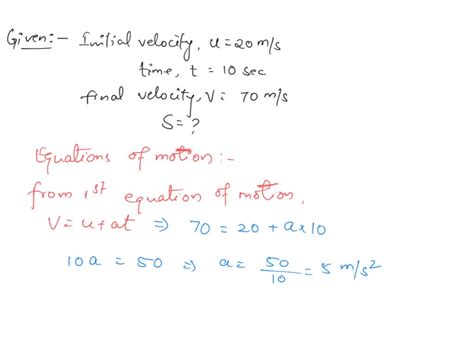 Given:- Initial velocity, u = 20 m/s
time, t = 10 sec
final velocity, V = 70 m/s
S = ?
Equations of motion:-
from 1st equation of motion,
V = u + at ⇒ 70 = 20 + a × 10
10 a = 50 ⇒ a = 50/10 = 5 m/s²